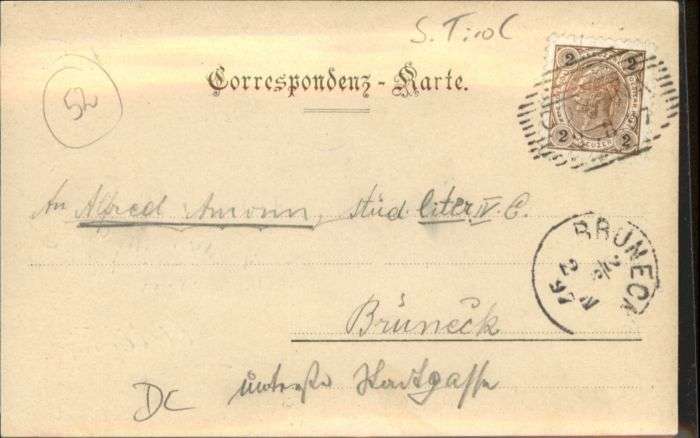 S. Tirol
52
Correspondenz-Karte.
2 2
2 KREUZER 2
An Alfred Amonn, stud. liter IV. C.
BRUNECK
2
97
Brūneck
DC unterste Stadtgasse